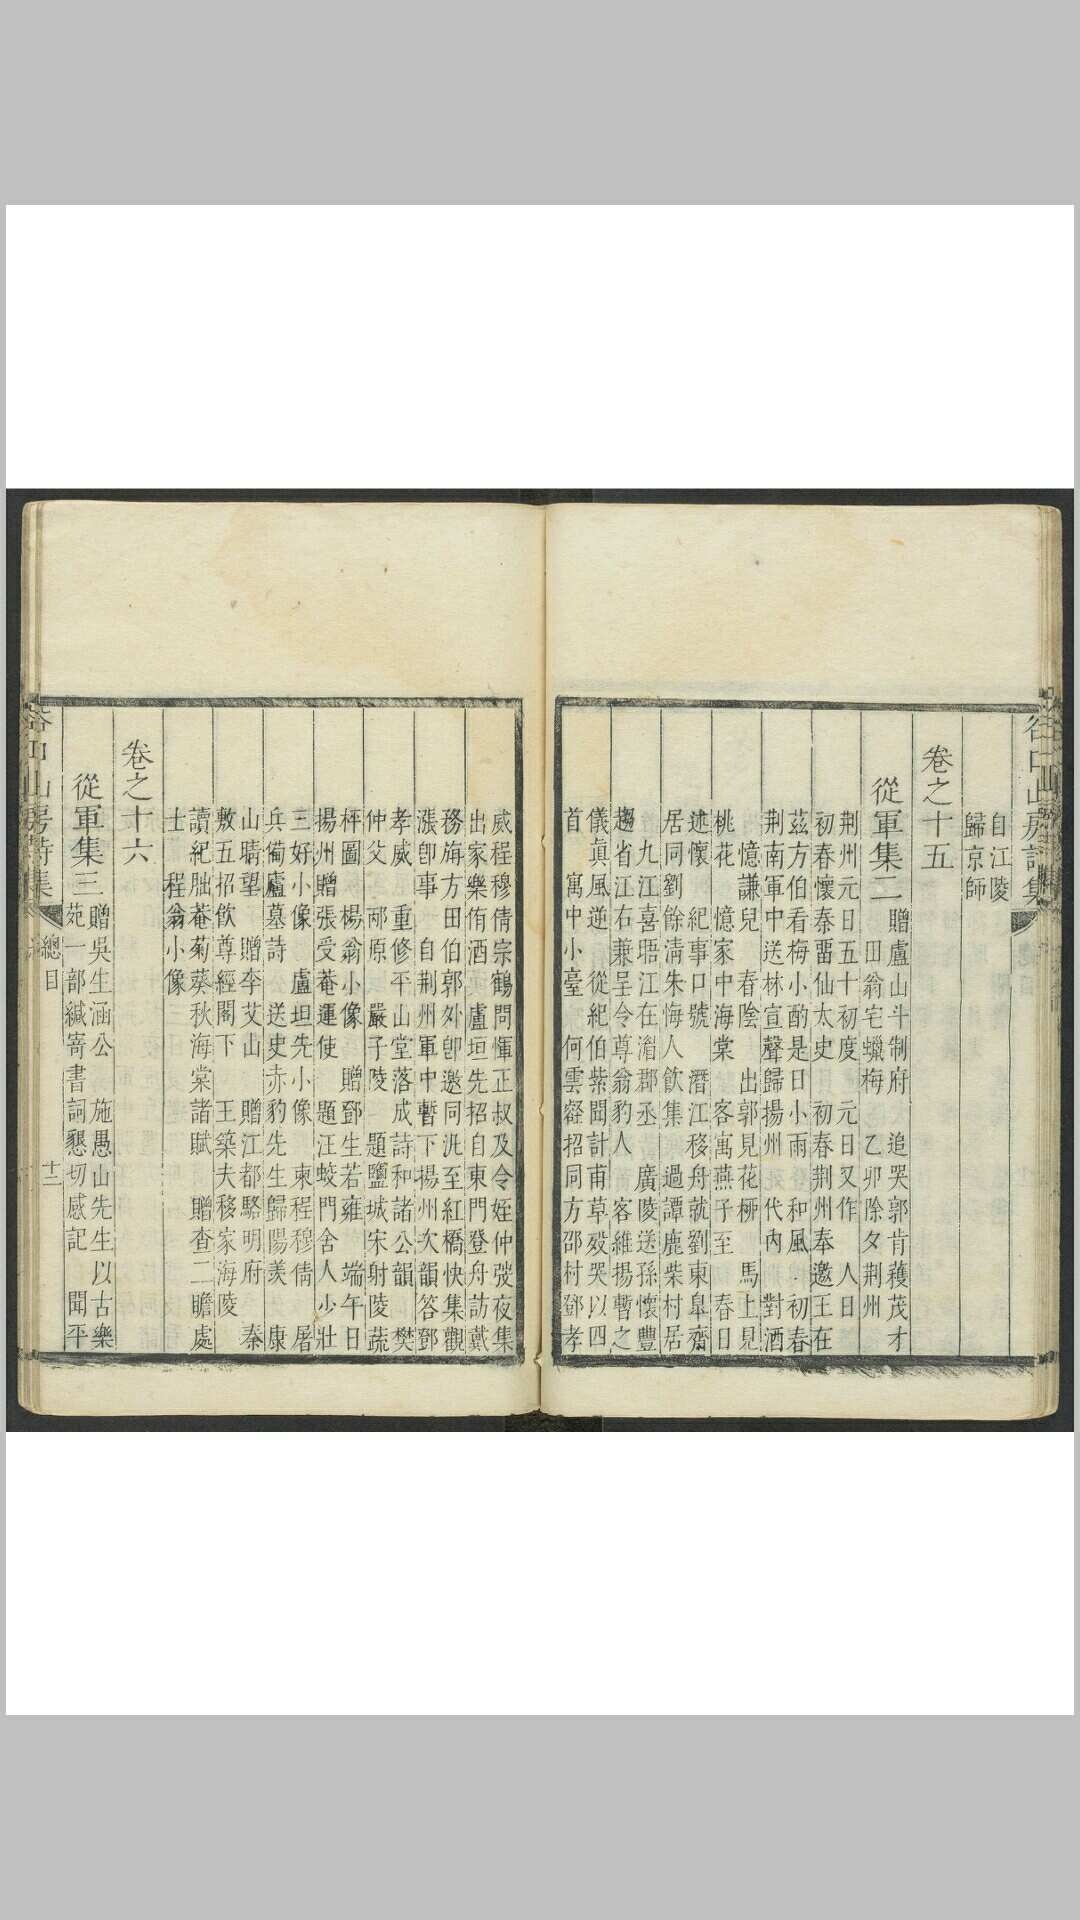 自江陵
歸京師
卷之十五
從軍集二
贈盧山斗制府 追哭郭肯穫茂才
田翁宅蠟梅 乙卯除夕荆州
荆州元日五十初度 元日又作 人日
初春懷泰畱仙太史 初春荆州奉邀王在
茲方伯看梅小酌是日小雨 和風 初春
荆南軍中送林宣聲歸揚州 代內 對酒
憶謙兒 春陰 出郭見花栁 馬上見
桃花 憶家中海棠 客寓燕子至 春日
述懷 紀事口號 潛江移舟就劉東皐齋
居同劉餘淸朱悔人飲集 過譚鹿柴村居
九江喜晤江在湄郡丞 廣陵送孫懷豐
趨省江右兼呈令尊翁豹人 客維揚暫之
儀眞風逆 從紀伯紫聞計甫草殁哭以四
首 寓中小臺 何雲壑招同方邵村鄧孝
威程穆倩宗鶴問惲正叔及令姪仲弢夜集
出家樂侑酒 盧垣先招自東門登舟訪戴
務旃方田伯郭外卽邀同汎至紅橋快集觀
漲卽事 自荆州軍中暫下揚州次韻答鄧
孝威 重修平山堂落成詩和諸公韻 樊
仲父 邴原 嚴子陵 題鹽城宋射陵蔬
枰圖 楊翁小像 贈鄧生若雍 端午日
揚州贈張受菴運使 題汪蛟門舍人少壯
三好小像 盧垣先小像 柬程穆倩 屠
兵備盧墓詩 送史赤豹先生歸陽羡 康
山晴望 贈李艾山 贈江都駱明府 秦
敷五招飲尊經閣下 王築夫移家海陵
讀紀朏菴菊葵秋海棠諸賦 贈查二瞻處
士 程翁小像
卷之十六
從軍集三
贈吳生涵公 施愚山先生以古樂
苑一部緘寄書詞懇切感記 聞平
谷口山房詩集 總目 十二